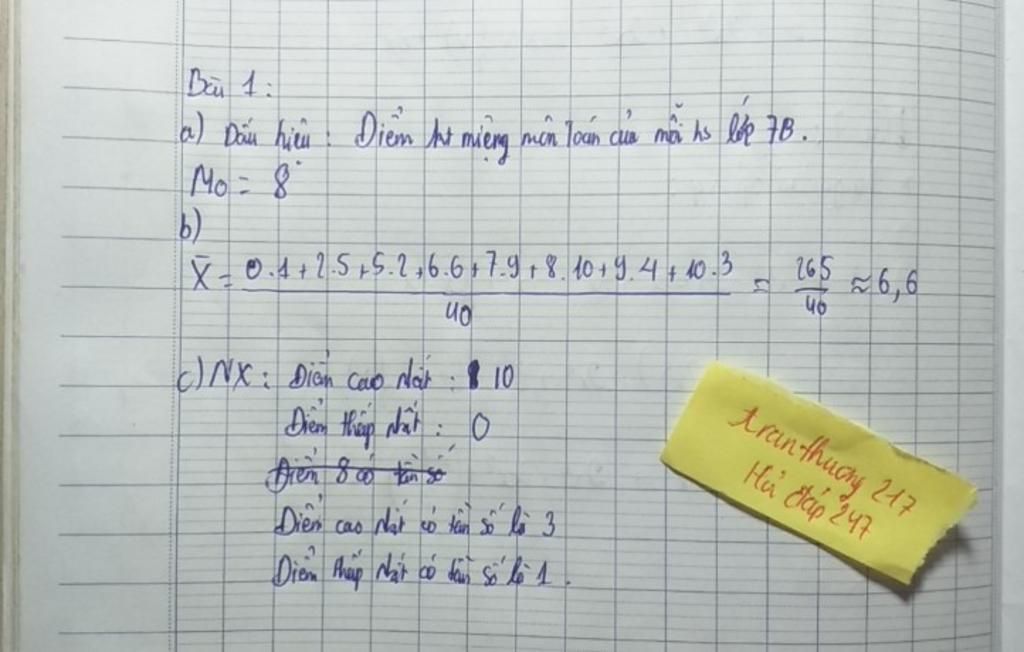 Bài 1:
a) Dấu hiệu: Điểm kt miệng môn Toán của mỗi hs lớp 7B.
Mo = 8
b)
X̄ = 0.1+2.5+5.2+6.6+7.9+8.10+9.4+10.3 / 40 = 265/40 ≈ 6,6
c) NX: Điểm cao nhất: 10
Điểm thấp nhất: 0
Điểm 8 có tần số
Điểm cao nhất có tần số là 3
Điểm thấp nhất có tần số là 1.
tranthuong 217
Hỏi đáp 247